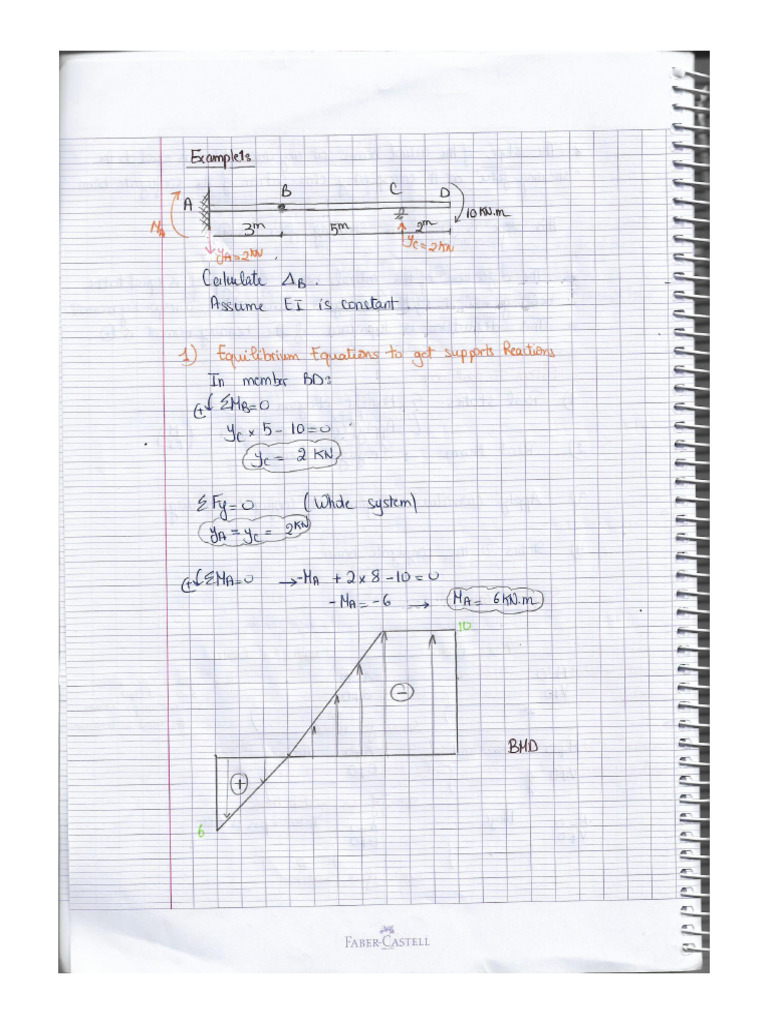 Example 1:
A B C D 10 KN.m
3m 5m 2m
MA
yA = 2KN yC = 2KN
Calculate ΔB.
Assume EI is constant.
1) Equilibrium Equations to get supports Reactions
In member BD:
(+↓ ΣMB=0
yC × 5 - 10 = 0
yC = 2 KN
ΣFy = 0 (Whole system)
yA = yC = 2KN
(+↓ ΣMA=0 → -MA + 2×8 - 10 = 0
-MA = -6 → MA = 6KN.m
10
-
BMD
+
6
FABER-CASTELL